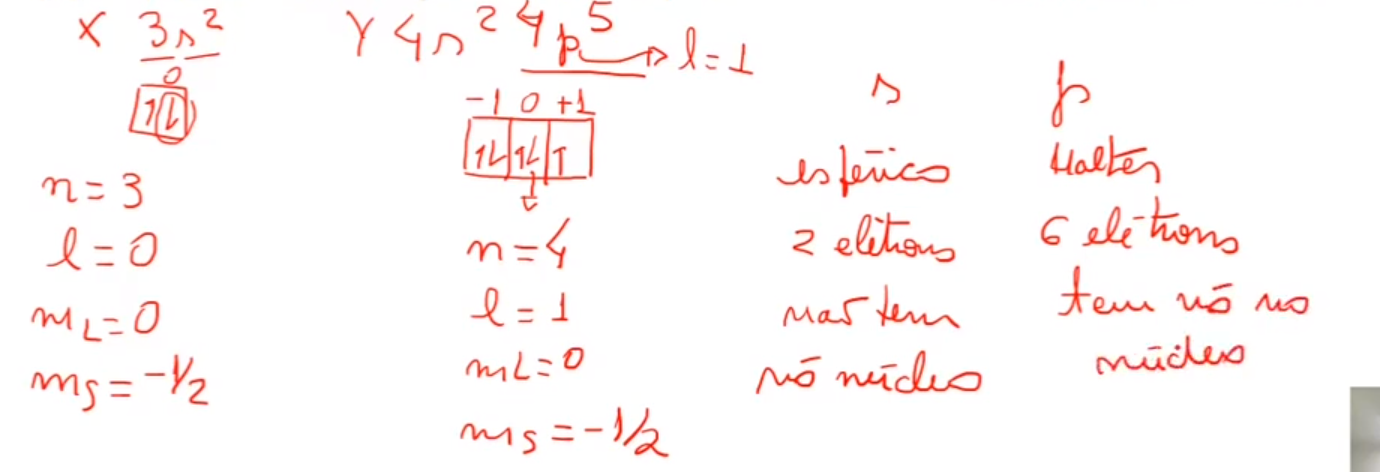 X 3s²
0
1L
n=3
l=0
mL=0
ms=-1/2
Y 4s² 4p⁵ → l=1
-1 0 +1
1L 1L 1
n=4
l=1
mL=0
ms=-1/2
s
esférico
2 elétrons
não tem
nó núcleo
p
Halter
6 elétrons
tem nó no
núcleo